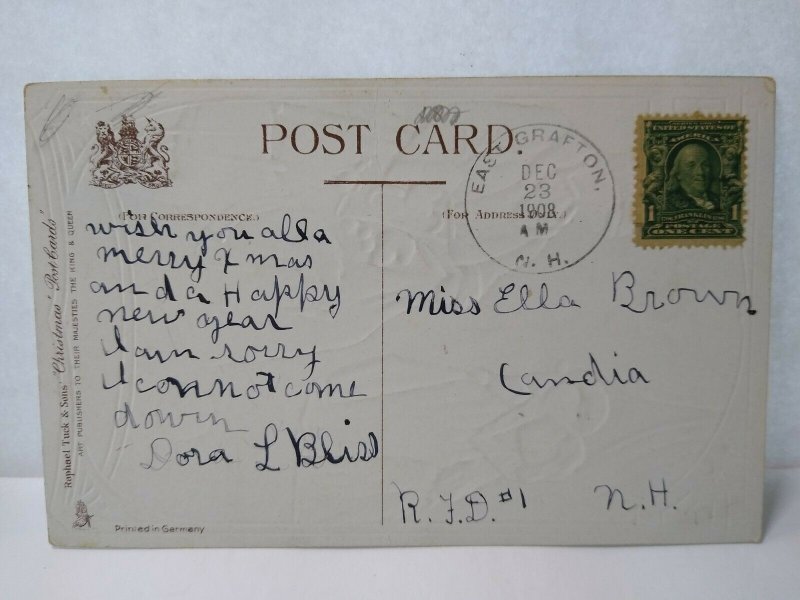 POST CARD.
(FOR CORRESPONDENCE.)
(FOR ADDRESS ONLY.)
EAST GRAFTON,
DEC
23
1908
AM
N. H.
UNITED STATES OF
AMERICA
1 FRANKLIN 1
POSTAGE
ONE CENT
wish you all a
merry Xmas
and a Happy
new year
I am sorry
I connot come
dowen
Dora L Bliss
Miss Ella Brown
Candia
R.F.D. #1 N.H.
Raphael Tuck & Sons' "Christmas" Post Cards"
ART PUBLISHERS TO THEIR MAJESTIES THE KING & QUEEN
Printed in Germany